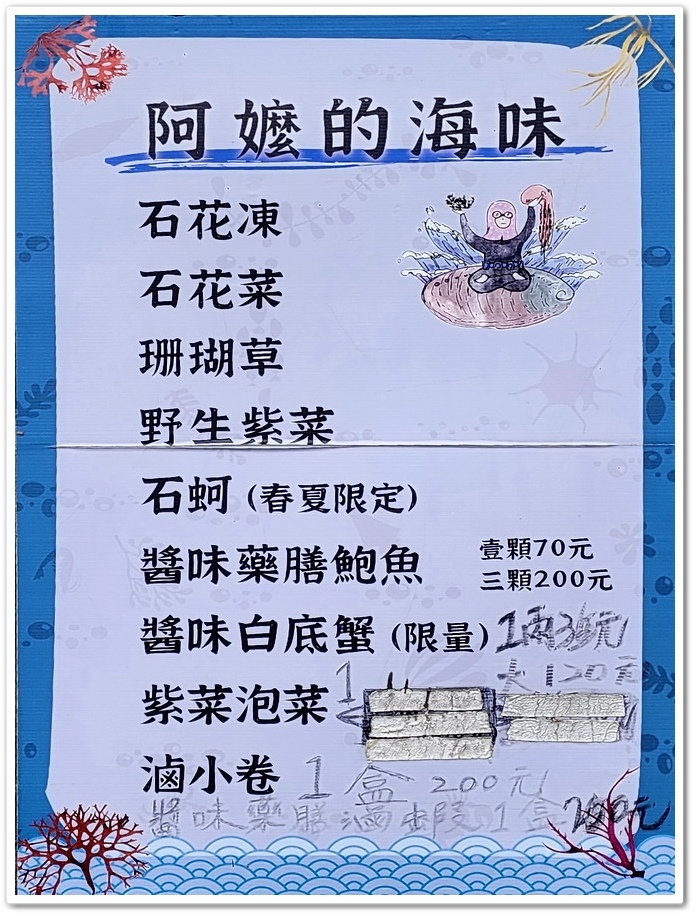 阿嬤的海味
石花凍
石花菜
珊瑚草
野生紫菜
石蚵 (春夏限定)
醬味藥膳鮑魚 壹顆70元
三顆200元
醬味白底蟹 (限量) 1兩35元
大120元
紫菜泡菜 1
滷小卷 1盒 200元
醬味藥膳滷蝦1盒 200元